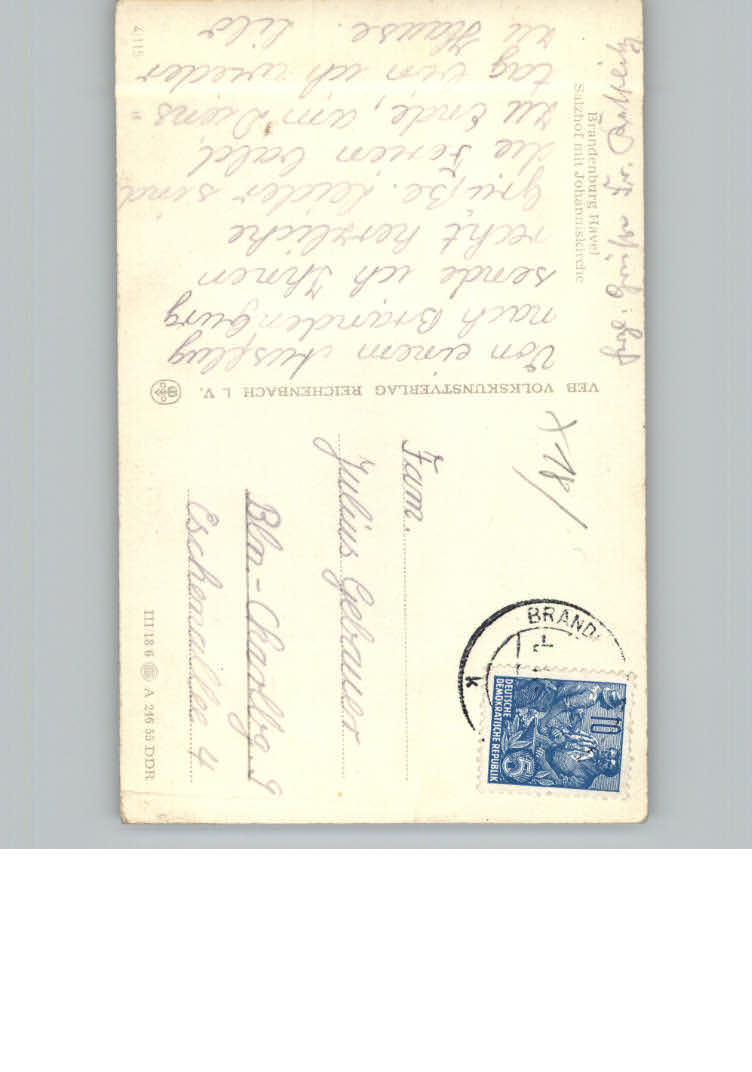 Brandenburg Havel
Salzhof mit Johanniskirche
Von einem Ausflug
nach Brandenburg
sende ich Ihnen
recht herzliche
Grüße. Leider sind
die Ferien bald
zu Ende, am Diens=
tag bin ich wieder
zu Hause. Lilo
Grüße
4115
VEB VOLKSKUNSTVERLAG REICHENBACH I. V.
X 18/
Fam.
Julius Gebauer
Bln.-Charlbg. 9
Eschenallee 4
BRAND
K
10
5
DEUTSCHE
DEMOKRATISCHE REPUBLIK
III 18 6 A 246 55 DDR